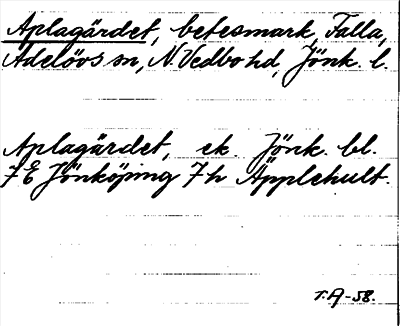 Aplagärdet, betesmark, Falla,
Adelövs sn, N. Vedbo hd, Jönk. l.
Aplagärdet, ek. Jönk. bl.
7E Jönköping 7h Äpplehult.
T.A-58.